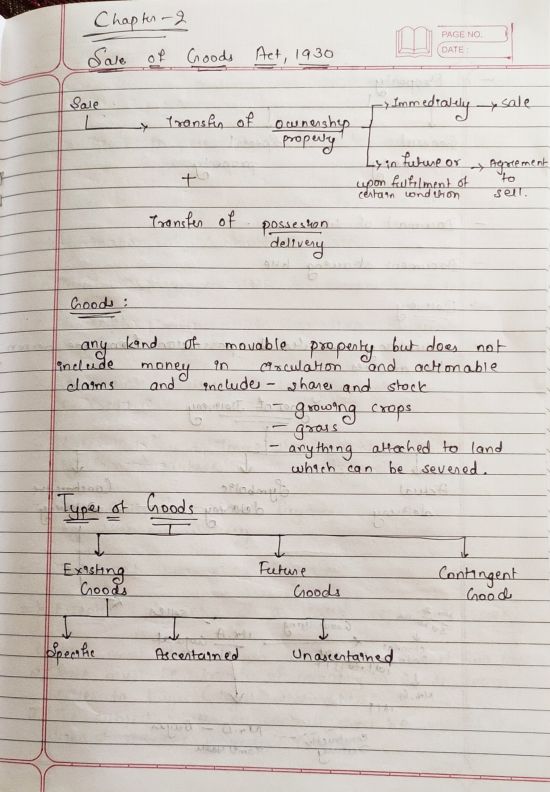 Chapter-2
PAGE NO.
DATE:
Sale of Goods Act, 1930
Sale
Transfer of ownership
property
Immediately → sale
in future or → Agreement
upon fulfilment of to
certain condition sell.
+
Transfer of possession
delivery
Goods:
any kind of movable property but does not
include money in circulation and actionable
claims and includes - shares and stock
- growing crops
- grass
- anything attached to land
which can be severed.
Types of Goods
Existing Future Contingent
Goods Goods Good
Specific Ascertained Unascertained